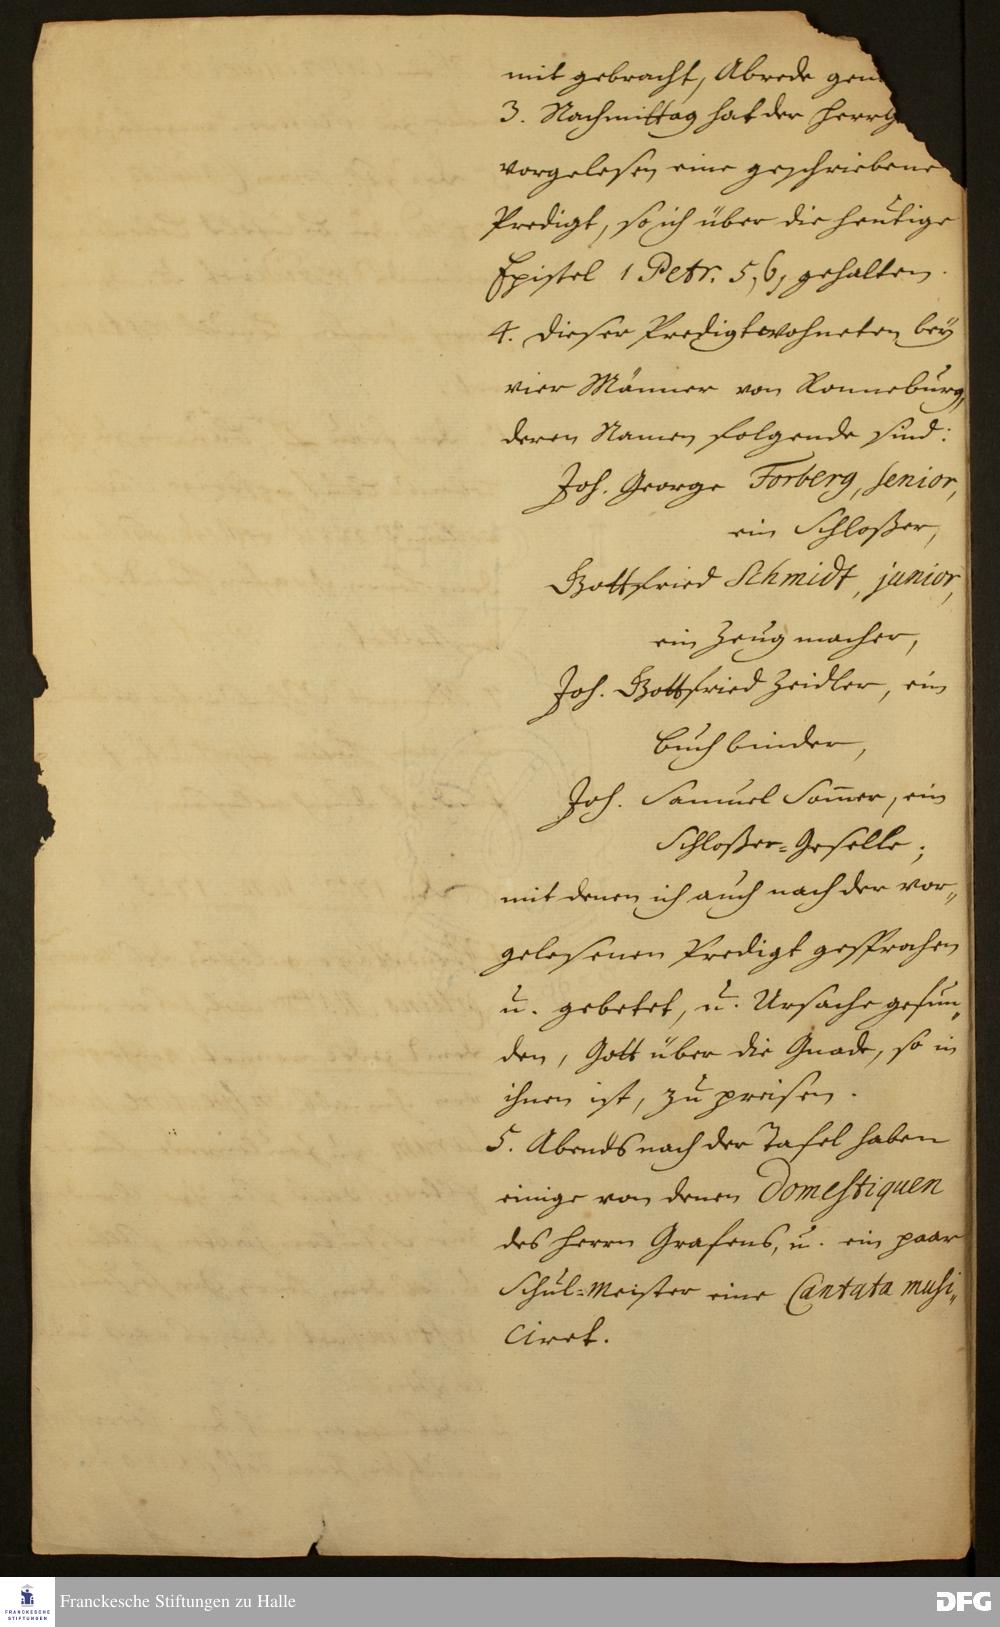 mit gebracht, Abrede gen
3. Nachmittag hat der Herr G
vorgelesen eine geschriebene
Predigt, so ich über die heutige
Epistel 1 Petr. 5,6, gehalten.
4. Dieser Predigt wohneten beÿ
vier Männer von Ronneburg,
deren Namen folgende sind:
Joh. George Forberg, senior,
ein Schloßer,
Gottfried Schmidt, junior,
ein Zeugmacher,
Joh. Gottfried Zeidler, ein
buchbinder,
Joh. Samuel Som̄er, ein
Schloßer-Geselle;
mit denen ich auch nach der vor-
gelesenen Predigt gesprochen
u. gebetet, u. Ursache gefun-
den, Gott über die Gnade, so in
ihnen ist, zu preisen.
5. Abends nach der Tafel haben
einige von denen Domestiquen
des Herrn Grafens, u. ein paar
Schul-Meister eine Cantata musi-
ciret.
FRANCKESCHE STIFTUNGEN
Franckesche Stiftungen zu Halle
DFG